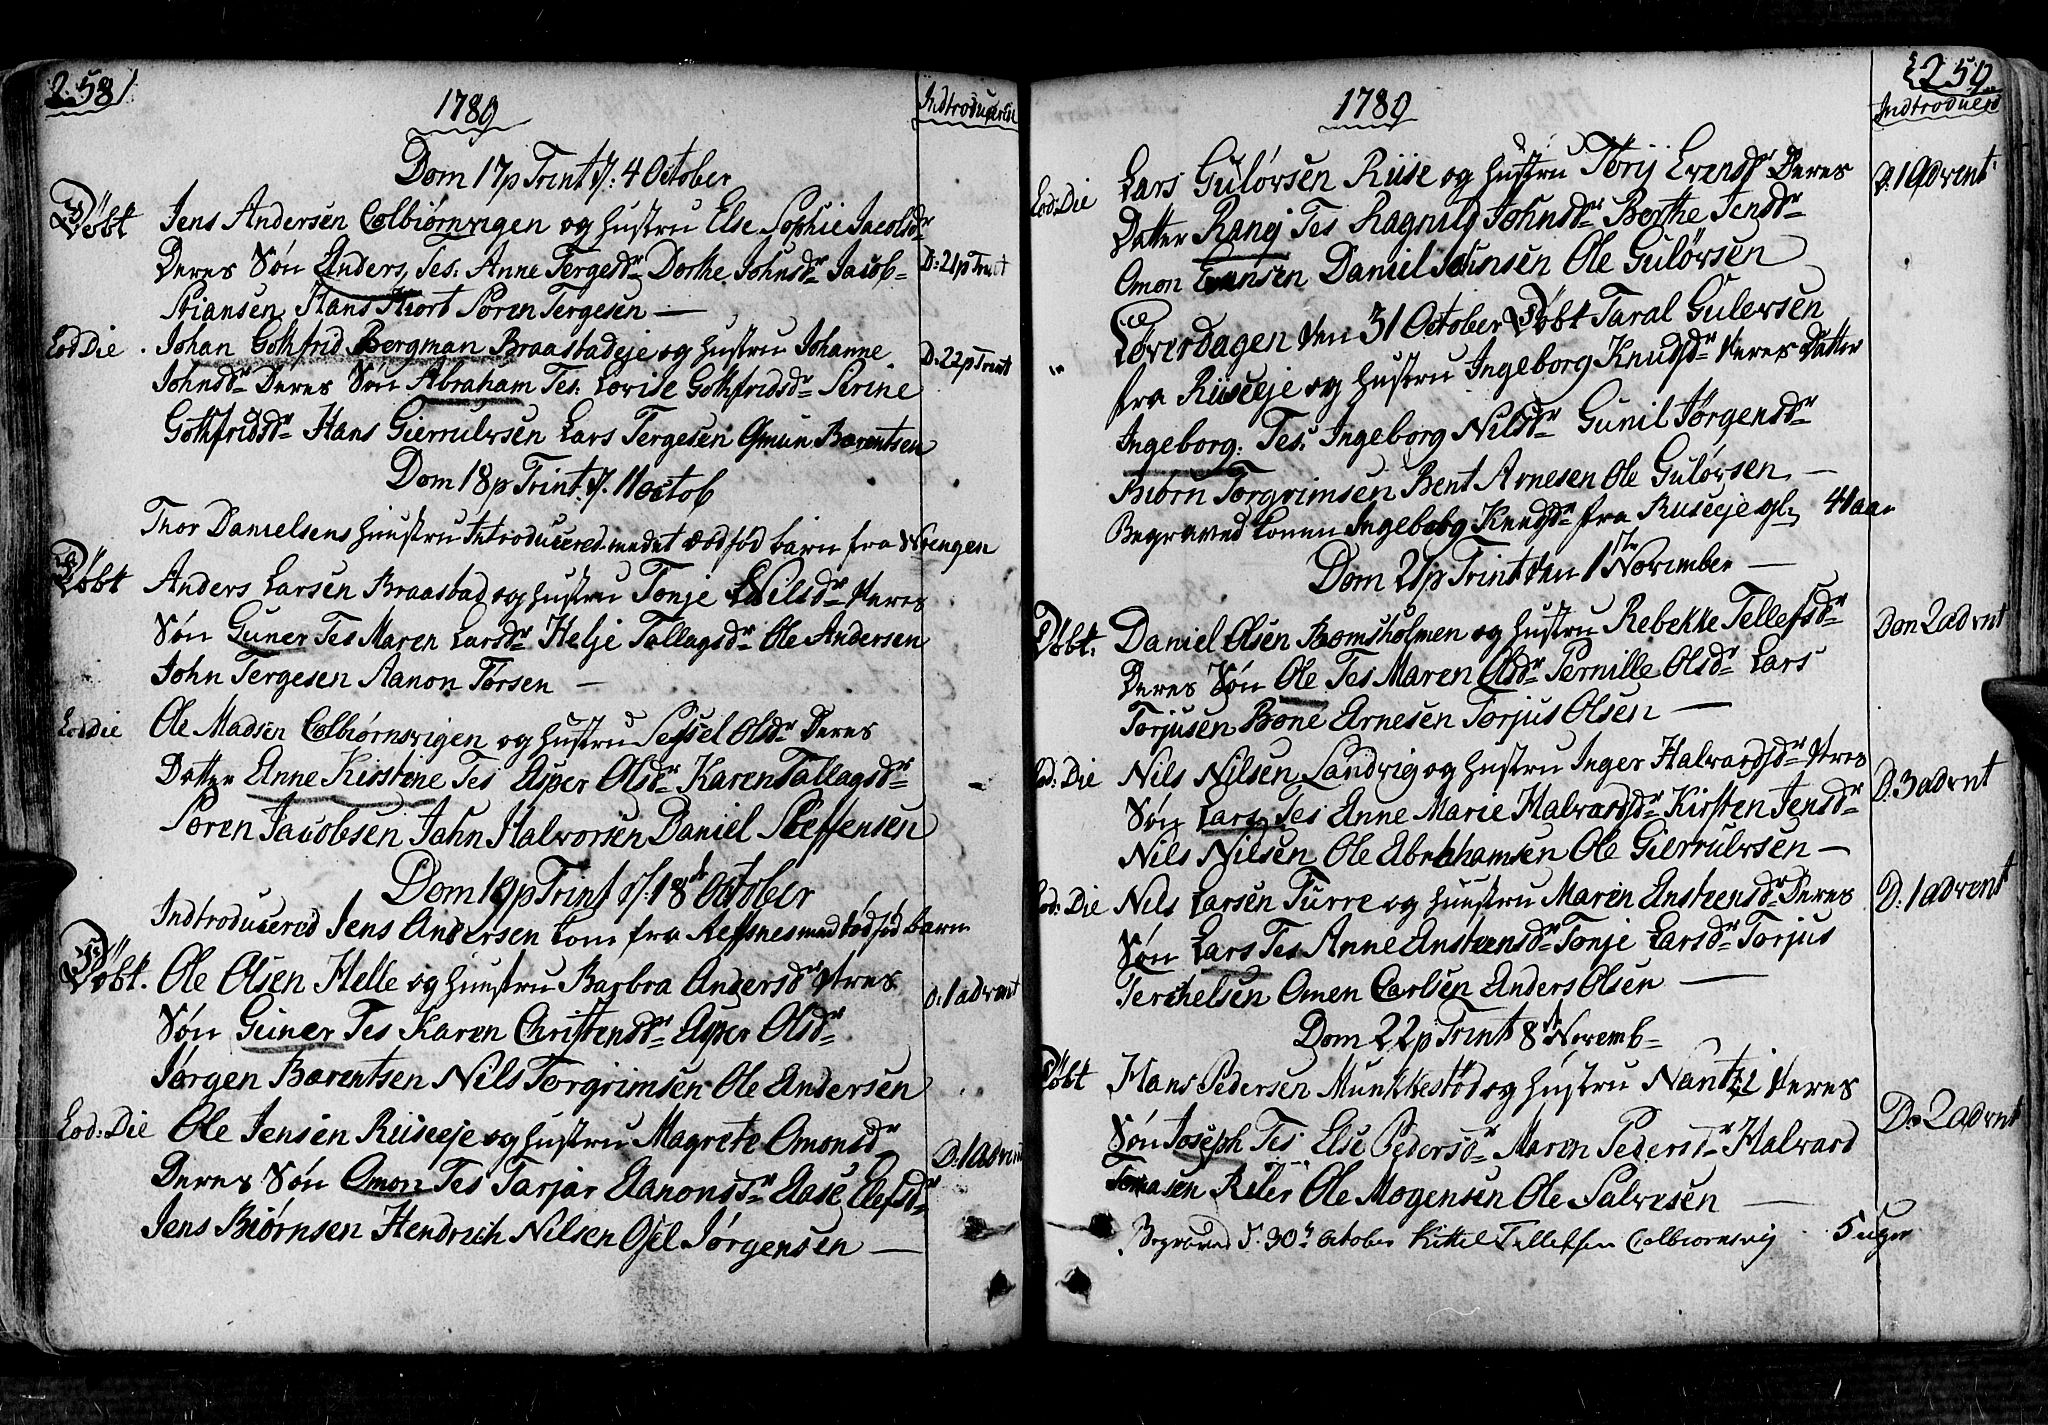 258
1789
Indtroducerede
Dom 17 p Trint d: 4 October
Døbt Jens Andersen Colbiørnsvigen og Hustru Else Sophie Jacobsdr
Deres Søn Anders, Tes: Anne Tergesdr Dorthe Johnsdr Jacob D: 21 p Trint
Stiansen Hans Hiort Søren Tergesen —
Eod Die Johan Gothfrid Bergman Braastadeje og Hustru Johanne D: 22 p Trint
Johnsdr Deres Søn Abraham Tes: Lovise Gothfridsdr Strine
Gothfridsdr Hans Gierrulvsen Lars Tergesen Omun Barentsen
Dom 18 p Trint: d. 11 octob
Thor Danielsens Huustru Introducered med et dødfød barn fra
Døbt Anders Larsen Braastad og Hustru Tonje Nilsdr Deres
Søn Guner Tes Maren Larsdr Helje Tallagsdr Ole Andersen
John Tergesen Aanon Torsen —
Eod die Ole Madsen Colbiørnsvigen og Hustru Sessel Olsdr Deres
Datter Anne Kirstine Tes Asper Olsdr Karen Tallagsdr
Søren Jacobsen Jahn Halvorsen Daniel Steffensen
Dom 19 p Trint d. 18de October
Indtroducered Jens Andersen kone fra Refsnes med dødfød barn
Døbt. Ole Olsen Helle og Huustru Barbra Andersdr Deres D: 1 advent
Søn Guner Tes Karen Christensdr Asper Olsdr
Jørgen Barentsen Nils Torgrimsen Ole Andersen
Eod: Die Ole Jensen Riiseeje og Hustru Magrete Omonsdr D: 1 advent
Deres Søn Omon Tes Tarjær Aanonsdr Aase Elefsdr
Jens Biørnsen Hendrich Nilsen Osel Jørgensen —
259
1789
Indtroduced
Eod: Die Lars Guløvsen Riise og Hustru Torij Evensdr Deres D. 1 Advent
Datter Ranej Tes Ragnild Johnsdr Berthe Jensdr
Omon Evensen Daniel Johnsen Ole Guløvsen
Løverdagen den 31 October Døbt Taral Gulevsen
fra Riiseeje og Hustru Ingeborg Knudsdr Deres Datter
Ingeborg: Tes: Ingeborg Nilsdr Gunil Jørgensdr
Biørn Torgrimsen Bent Arnesen Ole Guløvsen —
Begraved konen Ingeborg Knudsdr fra Riiseeje gl: 44 aar
Dom 21 p Trint den 1ste November —
Døbt. Daniel Olsen Bomsholmen og Hustru Rebekke Tellefsdr Dom 2 advnt
Deres Søn Ole Tes Maren Olsdr Pernille Olsdr Lars
Torjusen Bone Arnesen Torjus Olsen —
Eod: Die Nils Nilsen Sandvig og Hustru Inger Halvardsdr Deres D. 3 advnt
Søn Lars Tes Anne Marie Halvardsdr Kirsten Jensdr
Nils Nilsen Ole Abrahamsen Ole Gierrulvsen —
Eod: Die Nils Larsen Furre og Huustru Maren Enstensdr Deres D: 1 advent
Søn Lars Tes Anne Enstensdr Tonje Larsdr Torjus
Terchelsen Omen Carlsen Anders Olsen —
Dom 22 p Trint 8de Novemb
Døbt Hans Pedersen Munkkestød og Hustru Deres D: 2 advnt
Søn Joseph Tes Else Pedersdr Maren Pedersdr Halvard
Tomasen Reier Ole Mogensen Ole Salvesen —
Begraved d. 30te october Kittel Tellefsen Colbiornsvig 5 uger